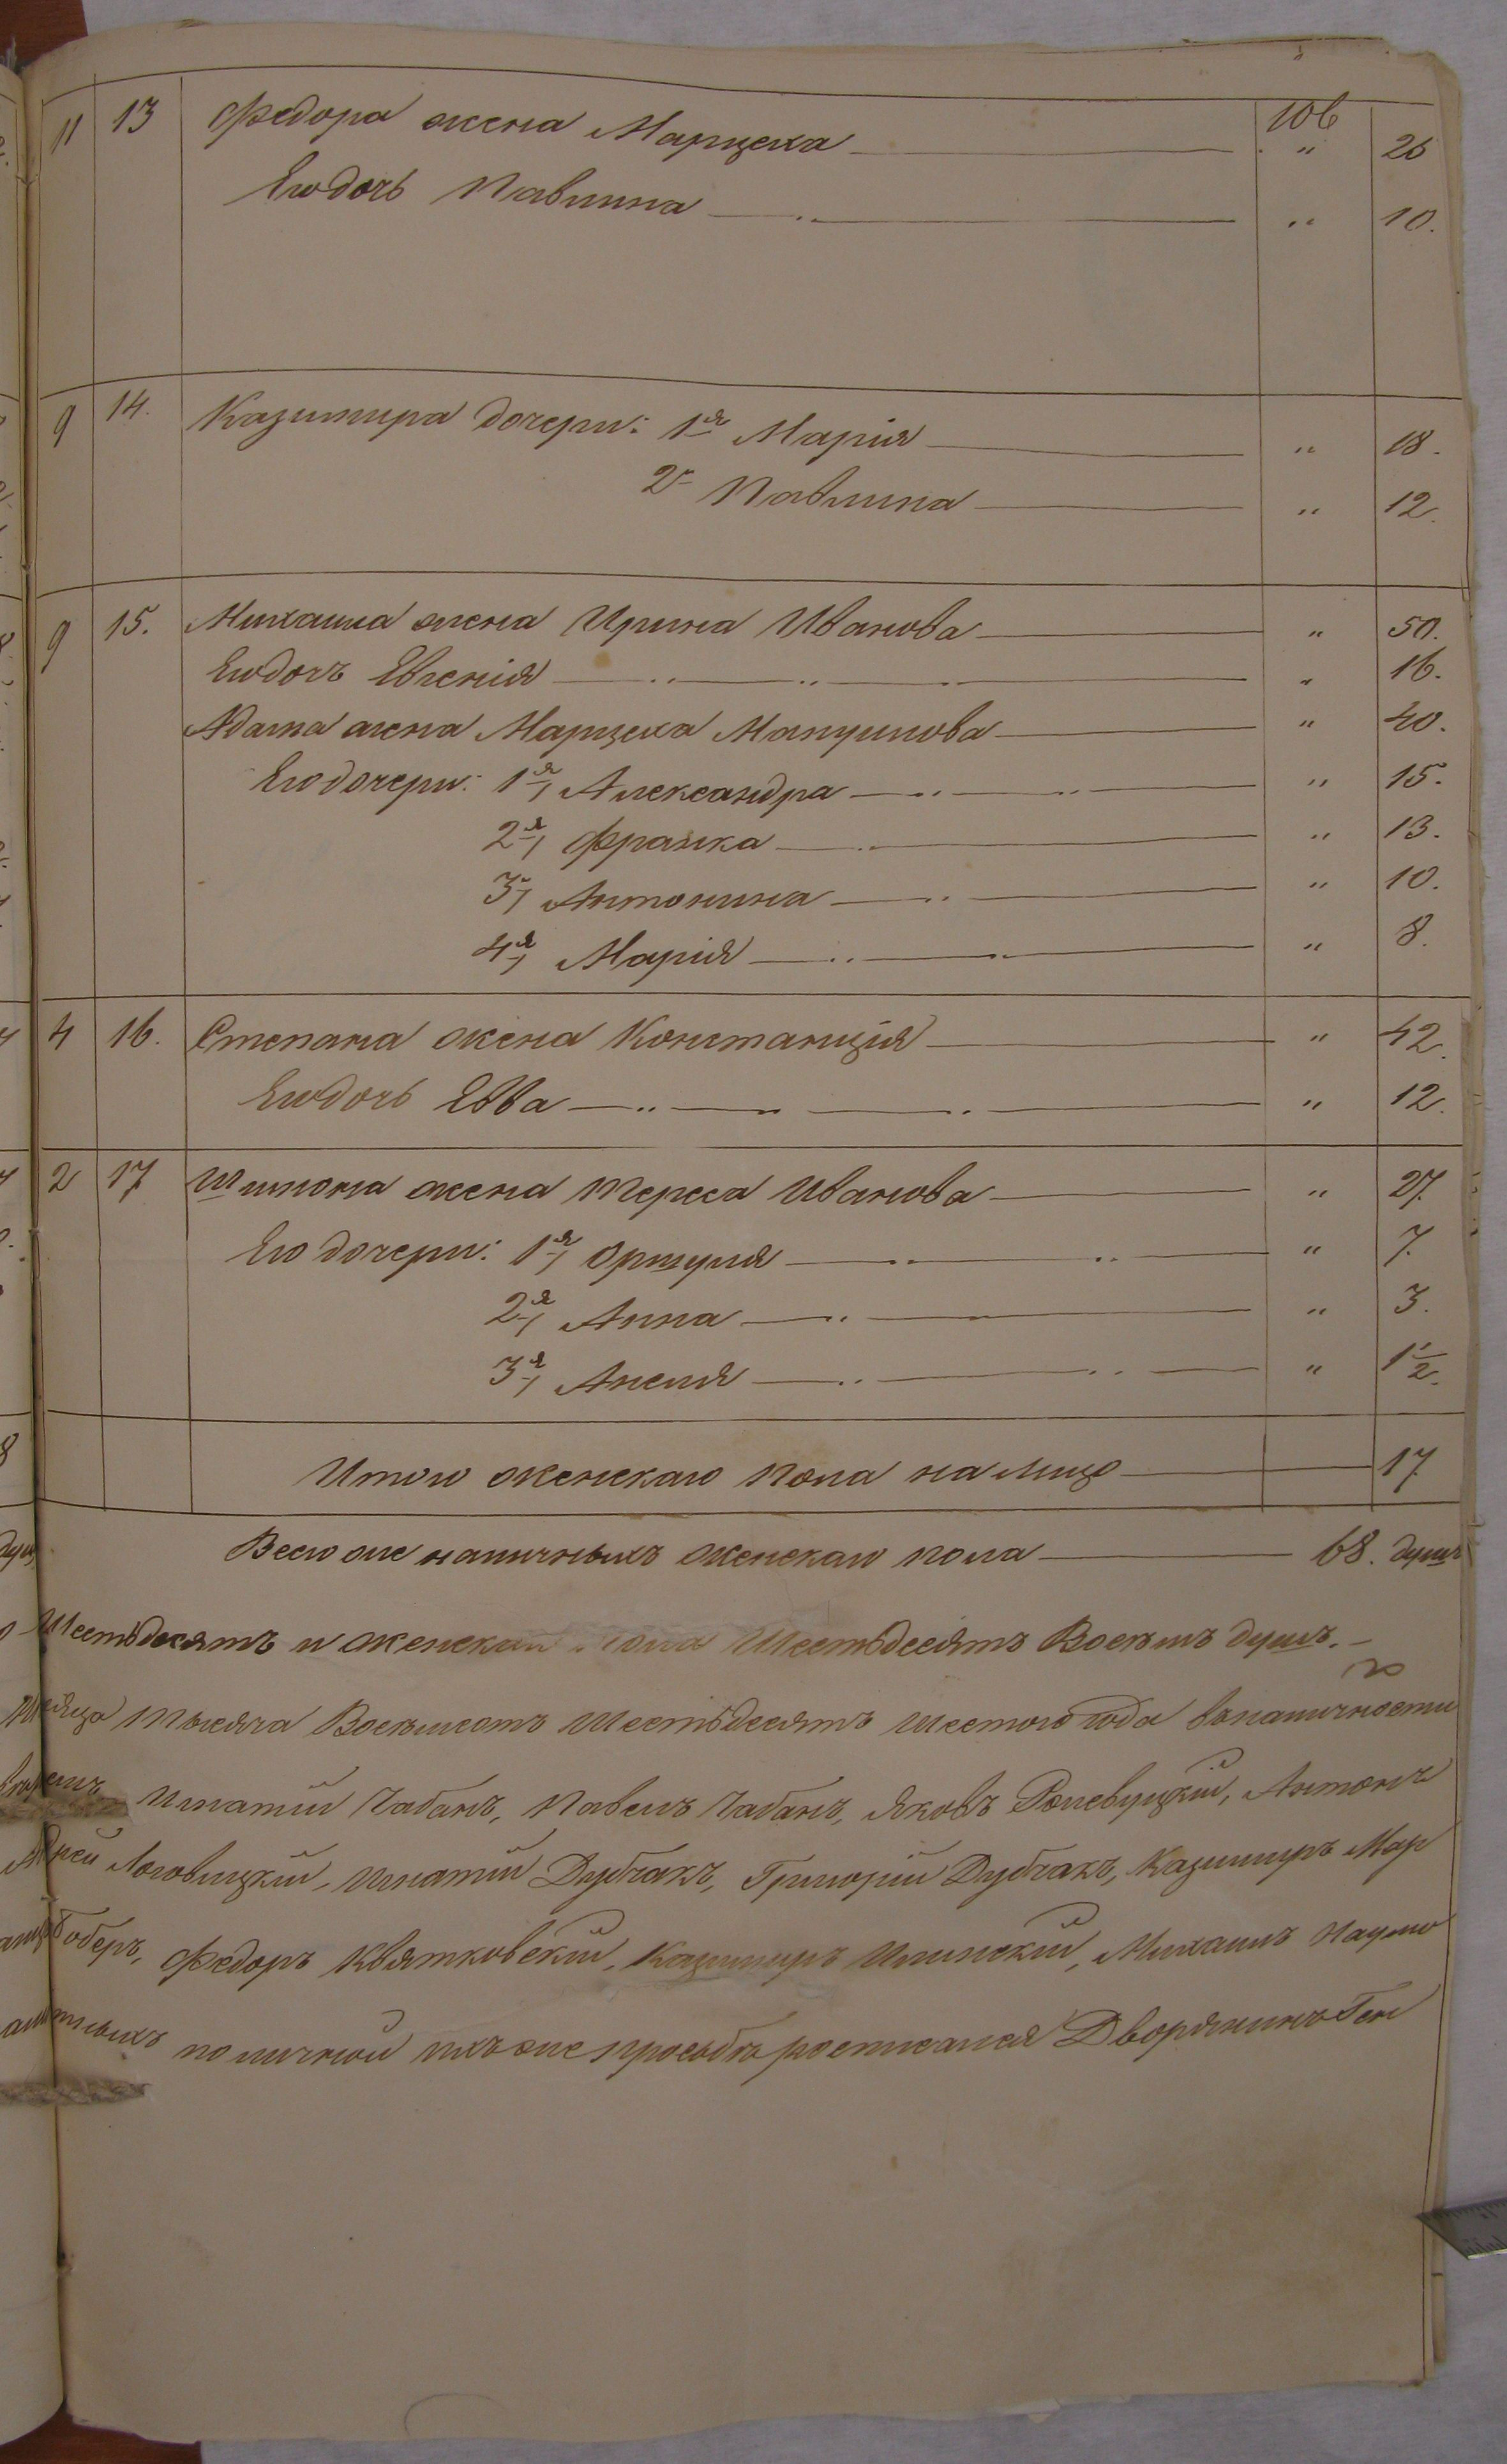 106
11 13 Федора жена Марцеха — " 26
Его дочь Павлина — " 10.
9 14. Казимира дочери: 1я Марія — " 18.
2я Павлина — " 12.
9 15. Михаила жена Ирина Иванова — " 50.
Его дочь Евгенія — " 16.
Адама жена Марцеха Мацулова — " 40.
Его дочери: 1я Александра — " 15.
2я Франка — " 13.
3я Антонина — " 10.
4я Марія — " 8.
4 16. Степана жена Констанція — " 42.
Его дочь Евва — " 12.
2 17 Шимона жена Тереса Иванова — " 27.
Его дочери: 1я Оршуля — " 7.
2я Анна — " 3.
3я Анеля — " 1 1/2.
Итого женскаго пола на лицо — 17
Всего же наличныхъ женскаго пола — 68. душъ
Шестьдесятъ и женскаго пола Шестьдесятъ Восемъ душъ. —
Тысяча Восемсотъ Шестьдесятъ шестого года въ наличности
Игнатій Чабанъ, Павелъ Чабанъ, Яковъ Антонъ
Логовицкій, Игнатій Дубчакъ, Григорій Дубчакъ, Казимиръ Мар
Боберъ, Федоръ Квятковскій, Казимиръ Илинскій, Михаилъ Наумо
по личной ихъ же просьбѣ росписался Дворянинъ Ген